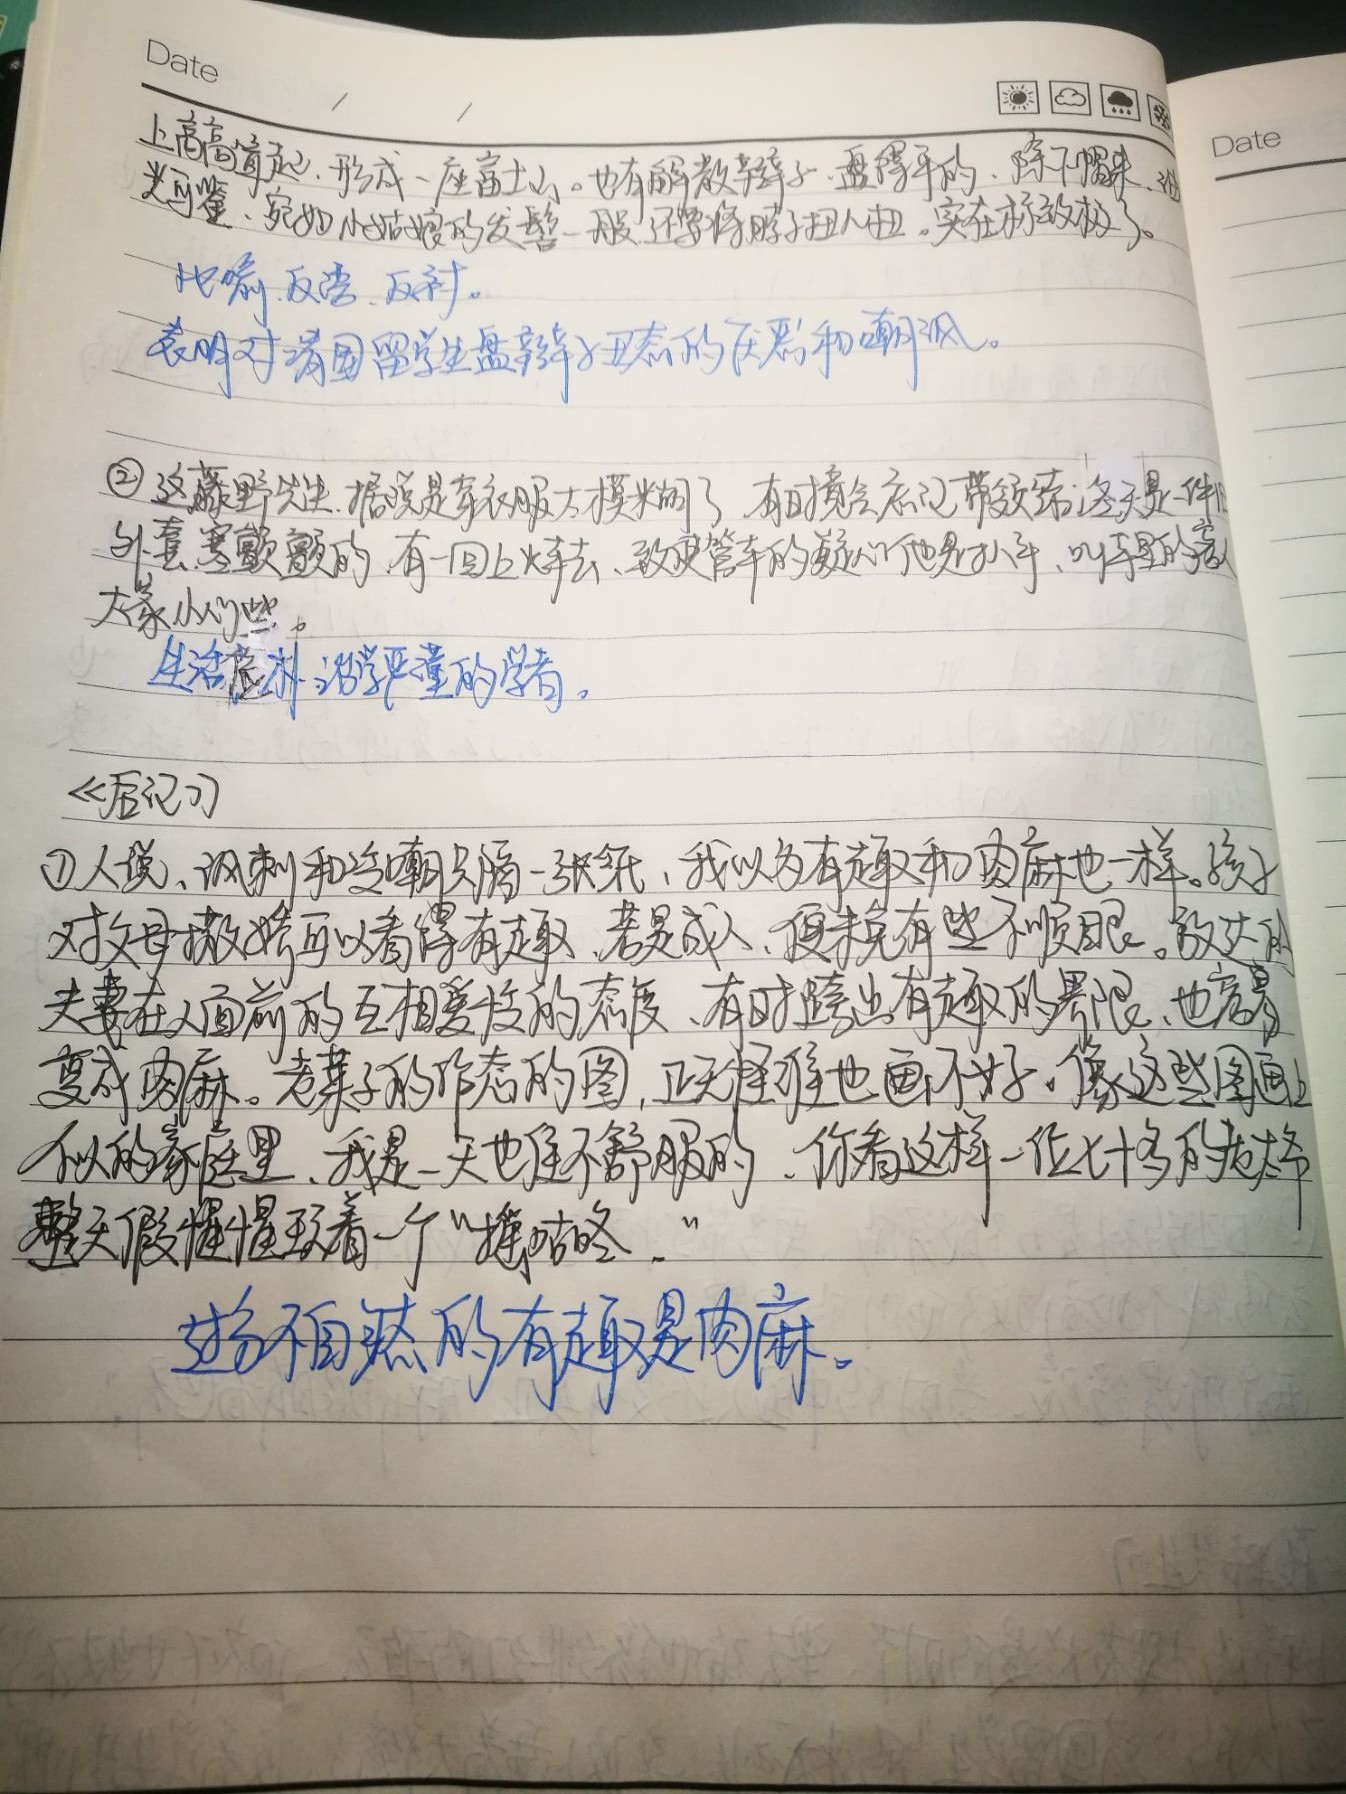 Date
/ /
上高高耸起、形成一座富士山。也有解散辫子、盘得平的、除下帽来、油
光可鉴、宛如小姑娘的发髻一般、还要将脖子扭几扭。实在标致极了。
比喻、反语、反衬。
表明对清国留学生盘辫子丑态的厌恶和嘲讽。
②这藤野先生、据说是穿衣服太模糊了、有时竟会忘记带领结;冬天是一件旧
外套、寒颤颤的、有一回上火车去、致使管车的疑心他是扒手、叫车里的客人
大家小心些。
生活质朴、治学严谨的学者。
《后记》
①人说、讽刺和冷嘲只隔一张纸、我以为有趣和肉麻也一样。孩子
对父母撒娇可以看得有趣、若是成人、便未免有些不顺眼。放达的
夫妻在人面前的互相爱怜的态度、有时跨出有趣的界限、也容易
变成肉麻。老莱子的作态的图,正无怪谁也画不好。像这些图画上
似的家庭里、我是一天也住不舒服的、你看这样一位七十多的老太爷
整天假惺惺玩着一个“摇咕咚.”
过分不自然的有趣是肉麻。
Date